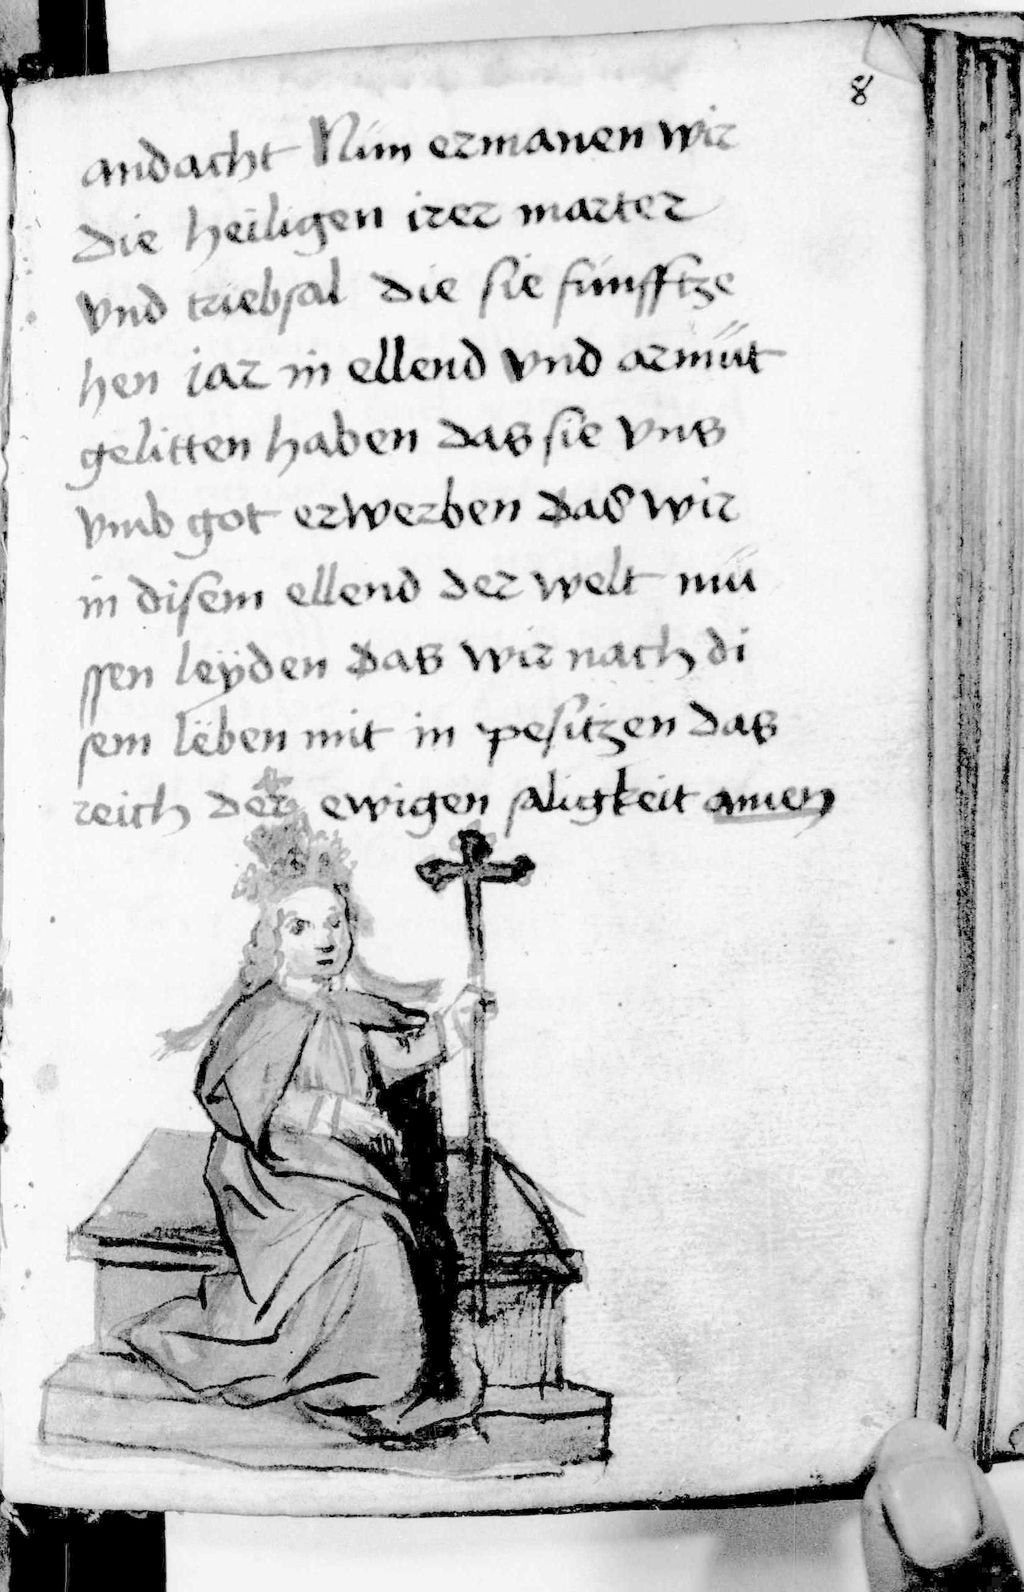 8
andacht Nun ermanen wir
die heiligen irer marter
vnd triebsal die sie fünfftze
hen iar in ellend vnd armüt
gelitten haben das sie vns
vmb got erwerben das wir
in disem ellend der welt mü
ssen leÿden das wir nach di
sem lëben mit in pesitzen das
reich der ewigen saligkeit amen